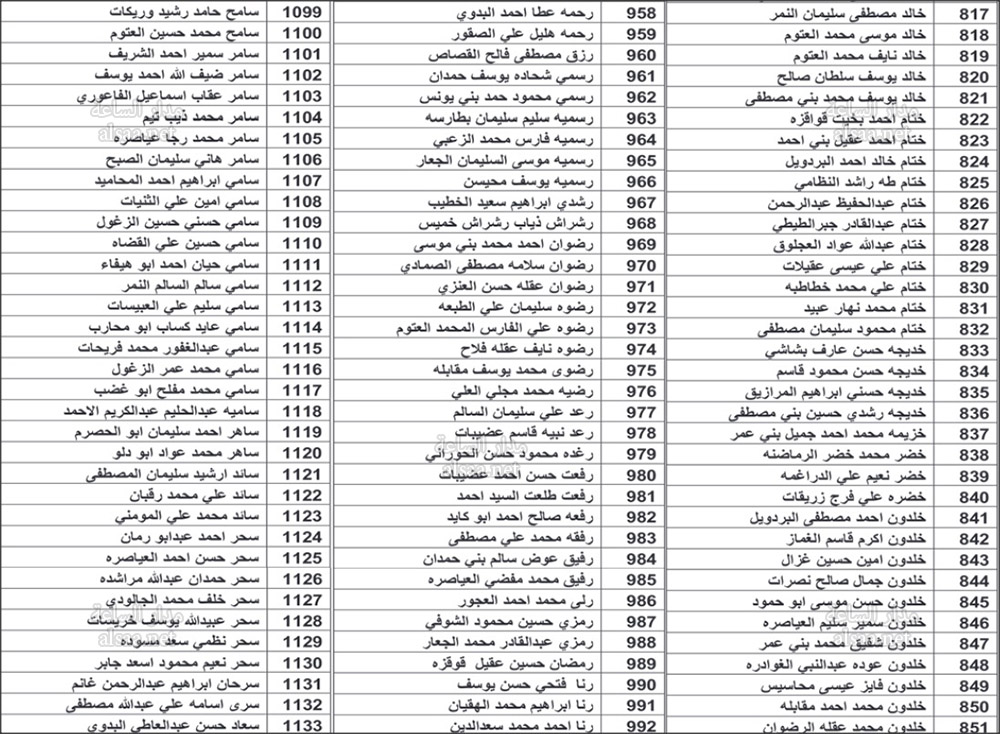 817 خالد مصطفى سليمان النمر
818 خالد موسى محمد العتوم
819 خالد نايف محمد العتوم
820 خالد يوسف سلطان صالح
821 خالد يوسف محمد بني مصطفى
822 ختام احمد بخيت قواقزه
823 ختام احمد عقيل بني احمد
824 ختام خالد احمد البردويل
825 ختام طه راشد النظامي
826 ختام عبدالحفيظ عبدالرحمن
827 ختام عبدالقادر جبرالطيطي
828 ختام عبدالله عواد العجلوق
829 ختام علي عيسى عقيلات
830 ختام علي محمد خطاطبه
831 ختام محمد نهار عبيد
832 ختام محمود سليمان مصطفى
833 خديجه حسن عارف بشاشي
834 خديجه حسن محمود قاسم
835 خديجه حسني ابراهيم المرازيق
836 خديجه رشدي حسين بني مصطفى
837 خزيمه محمد احمد جميل بني عمر
838 خضر محمد خضر الرماضنه
839 خضر نعيم علي الدراغمه
840 خضره علي فرج زريقات
841 خلدون احمد مصطفى البردويل
842 خلدون اكرم قاسم الغماز
843 خلدون امين حسين غزال
844 خلدون جمال صالح نصرات
845 خلدون حسن موسى ابو حمود
846 خلدون سمير سليم العياصره
847 خلدون شفيق محمد بني عمر
848 خلدون عوده عبدالنبي الغوادره
849 خلدون فايز عيسى محاسيس
850 خلدون محمد احمد مقابله
851 خلدون محمد عقله الرضوان
958 رحمه عطا احمد البدوي
959 رحمه هليل علي الصقور
960 رزق مصطفى فالح القصاص
961 رسمي شحاده يوسف حمدان
962 رسمي محمود حمد بني يونس
963 رسميه سليم سليمان بطارسه
964 رسميه فارس محمد الزعبي
965 رسميه موسى السليمان الجعار
966 رسميه يوسف محيسن
967 رشدي ابراهيم سعيد الخطيب
968 رشراش ذياب رشراش خميس
969 رضوان احمد محمد بني موسى
970 رضوان سلامه مصطفى الصمادي
971 رضوان عقله حسن العنزي
972 رضوه سليمان علي الطبعه
973 رضوه علي الفارس المحمد العتوم
974 رضوه نايف عقله فلاح
975 رضوى محمد يوسف مقابله
976 رضيه محمد مجلي العلي
977 رعد علي سليمان السالم
978 رعد نبيه قاسم عضيبات
979 رغده محمود حسن الحوراني
980 رفعت حسن احمد عضيبات
981 رفعت طلعت السيد احمد
982 رفعه صالح احمد ابو كايد
983 رفقه محمد علي مصطفى
984 رفيق عوض سالم بني حمدان
985 رفيق محمد مفضي العياصره
986 رلى محمد احمد العجور
987 رمزي حسين محمود الشوفي
988 رمزي عبدالقادر محمد الجعار
989 رمضان حسين عقيل قوقزه
990 رنا فتحي حسن يوسف
991 رنا ابراهيم محمد الهقيان
992 رنا احمد محمد سعدالدين
1099 سامح حامد رشيد وريكات
1100 سامح محمد حسين العتوم
1101 سامر سمير احمد الشريف
1102 سامر ضيف الله احمد يوسف
1103 سامر عقاب اسماعيل الفاعوري
1104 سامر محمد ذيب تيم
1105 سامر محمد رجا عياصره
1106 سامر هاني سليمان الصبح
1107 سامي ابراهيم احمد المحاميد
1108 سامي امين علي الثنيات
1109 سامي حسني حسين الزغول
1110 سامي حسين علي القضاه
1111 سامي حيان احمد ابو هيفاء
1112 سامي سالم السالم النمر
1113 سامي سليم علي العبيسات
1114 سامي عايد كساب ابو محارب
1115 سامي عبدالغفور محمد فريحات
1116 سامي محمد عمر الزغول
1117 سامي محمد مفلح ابو غضب
1118 ساميه عبدالحليم عبدالكريم الاحمد
1119 ساهر احمد سليمان ابو الحصرم
1120 ساهر محمد عواد ابو دلو
1121 سائد ارشيد سليمان المصطفى
1122 سائد علي محمد رقبان
1123 سائد محمد علي المومني
1124 سحر احمد عبدابو رمان
1125 سحر حسن احمد العياصره
1126 سحر حمدان عبدالله مراشده
1127 سحر خلف محمد الجالودي
1128 سحر عبيدالله يوسف خريسات
1129 سحر نظمي سعد مسوده
1130 سحر نعيم محمود اسعد جابر
1131 سرحان ابراهيم عبدالرحمن غانم
1132 سرى اسامه علي عبدالله مصطفى
1133 سعاد حسن عبدالعاطي البدوي
مدار الساعة
alsaa.net